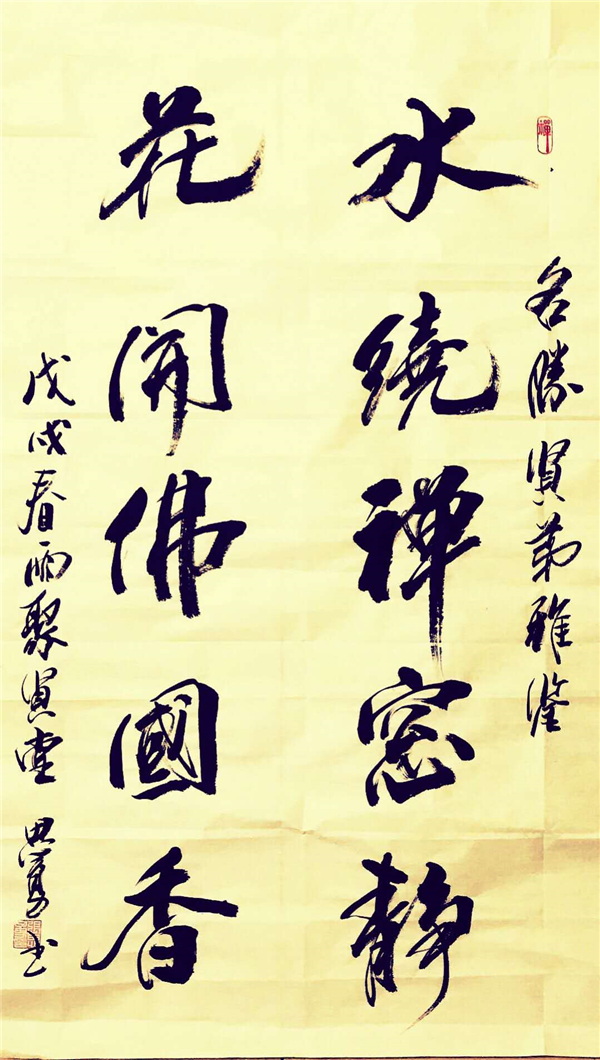 名勝賢弟雅鑒
水繞禪窓靜
花開佛國香
戊戌春雨聚賢堂 書
禪